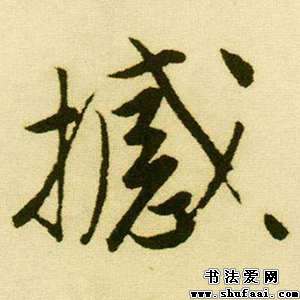 撼
书法爱网
www.shufaai.com